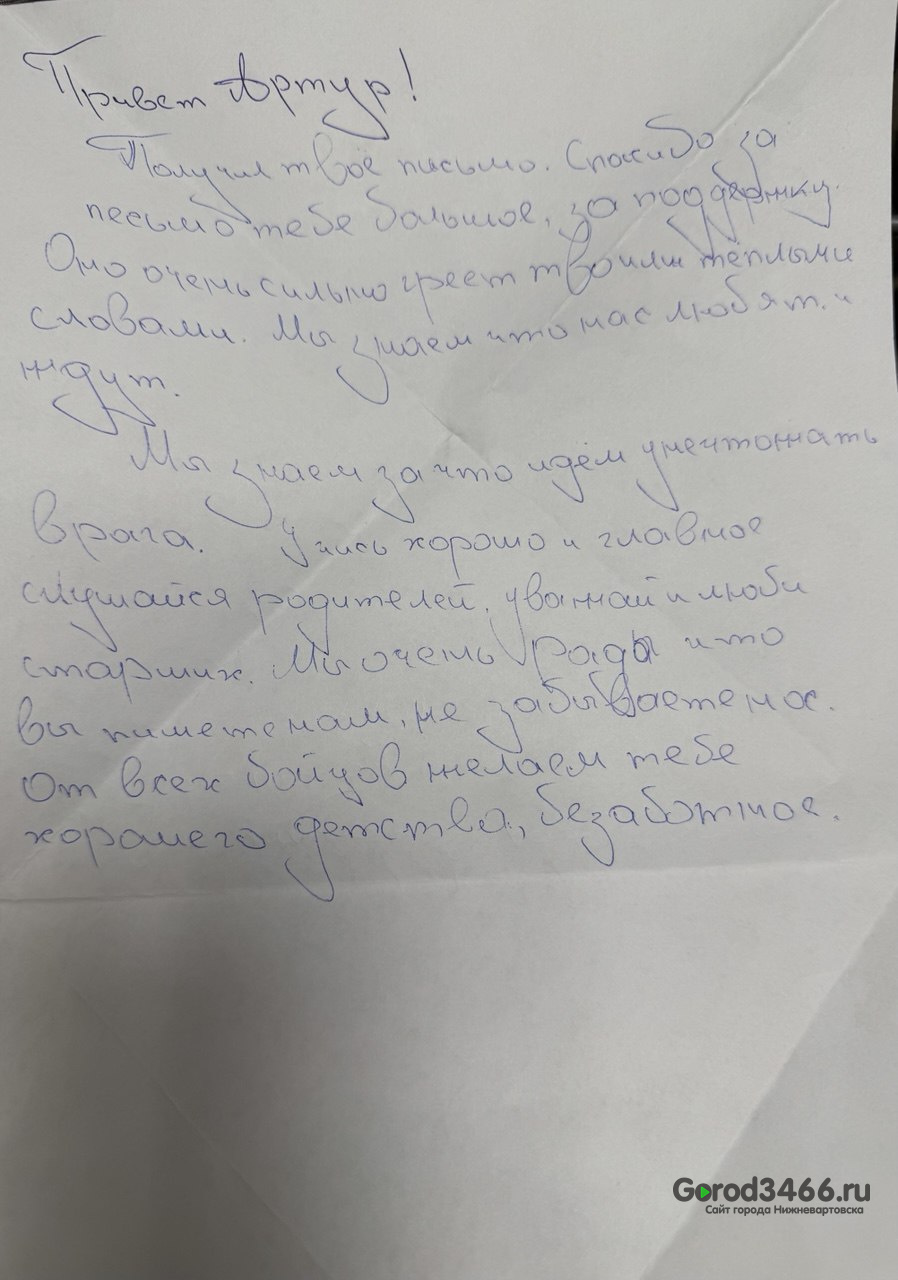 Привет Артур!
Получил твоё письмо. Спасибо за
песьмо тебе большое, за поддержку.
Оно очень сильно греет твоими тёплыми
словами. Мы знаем что нас любят и
ждут.
Мы знаем за что идём унечтожать
врага. Учись хорошо и главное
слушайся родителей, уважай и люби
старших. Мы очень рады что
вы пишете нам, не забываете нас.
От всех бойцов желаем тебе
хорошего детства, беззаботное.
Gorod3466.ru
Сайт города Нижневартовска